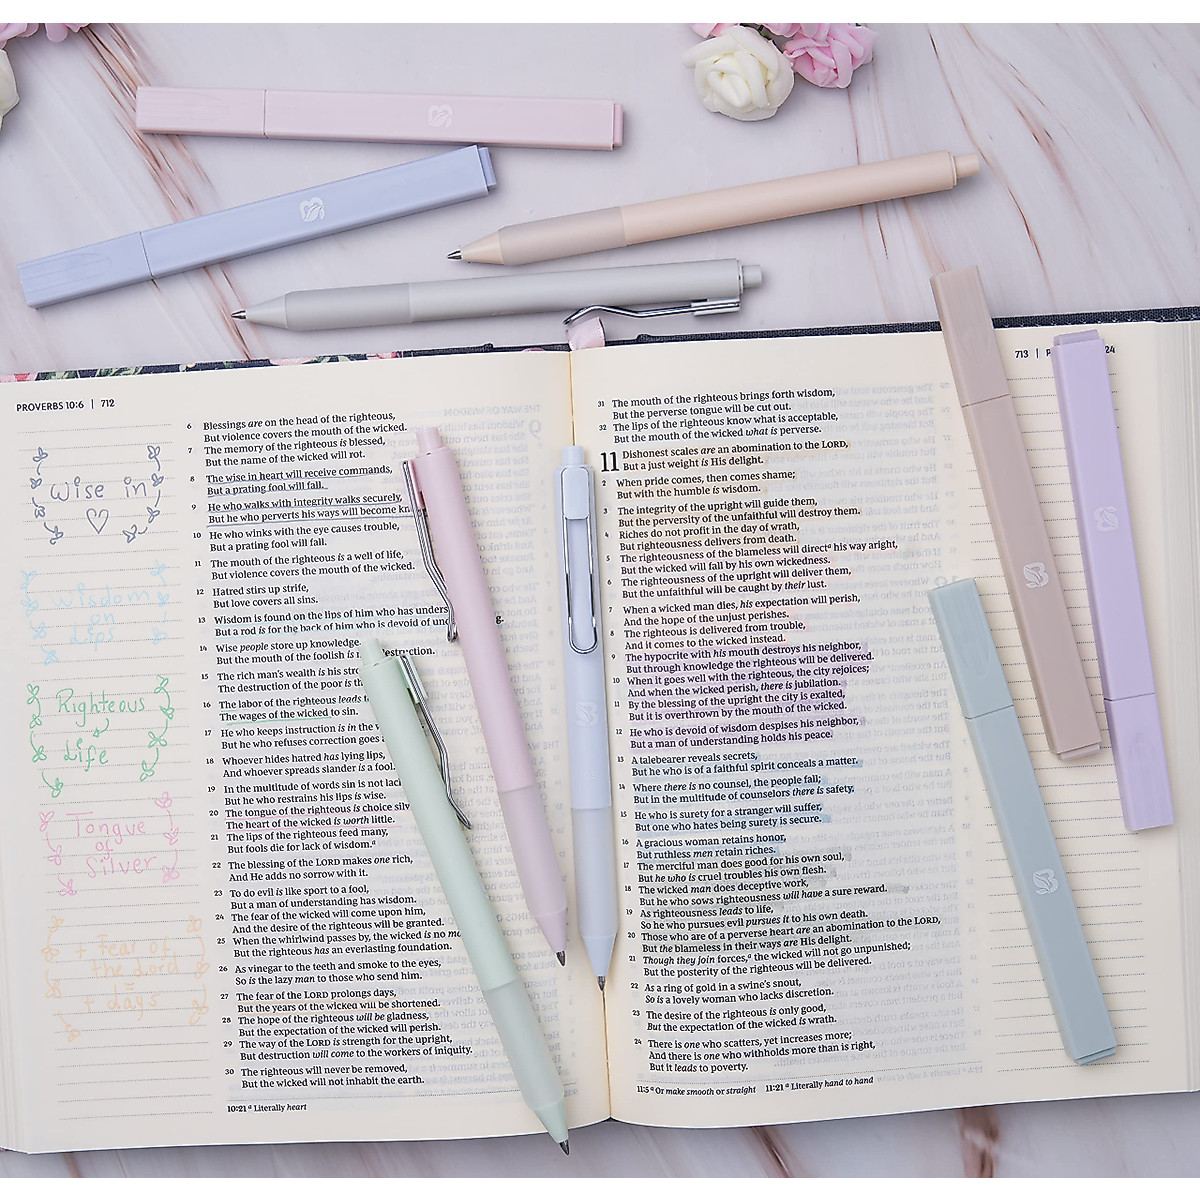 PROVERBS 10:6 | 712
Wise in
Wisdom
on
Lips
Righteous
Life
Tongue
of
Silver
+ Fear of
the Lord
=
+ days
6 Blessings are on the head of the righteous,
But violence covers the mouth of the wicked.
7 The memory of the righteous is blessed,
But the name of the wicked will rot.
8 The wise in heart will receive commands,
But a prating fool will fall.
9 He who walks with integrity walks securely,
But he who perverts his ways will become
10 He who winks with the eye causes trouble,
But a prating fool will fall.
11 The mouth of the righteous is a well of life,
But violence covers the mouth of the wicked.
12 Hatred stirs up strife,
But love covers all sins.
13 Wisdom is found on the lips of him who has
But a rod is for the back of him who is devoid of
14 Wise people store up knowledge
But the mouth of the foolish is destruction.
15 The rich man's wealth is his
The destruction of the poor is
16 The labor of the righteous leads
The wages of the wicked to sin.
17 He who keeps instruction is in the
But he who refuses correction goes
18 Whoever hides hatred has lying lips,
And whoever spreads slander is a fool.
19 In the multitude of words sin is not
But he who restrains his lips is wise.
20 The tongue of the righteous is choice
The heart of the wicked is worth little.
21 The lips of the righteous feed many,
But fools die for lack of wisdom.a
22 The blessing of the LORD makes one rich,
And He adds no sorrow with it.
23 To do evil is like sport to a fool,
But a man of understanding has wisdom.
24 The fear of the wicked will come upon him,
And the desire of the righteous will be granted.
25 When the whirlwind passes by, the wicked is no
But the righteous has an everlasting foundation.
26 As vinegar to the teeth and smoke to the eyes,
So is the lazy man to those who send him.
27 The fear of the LORD prolongs days,
But the years of the wicked will be shortened.
28 The hope of the righteous will be gladness,
But the expectation of the wicked will perish.
29 The way of the LORD is strength for the upright,
But destruction will come to the workers of iniquity.
30 The righteous will never be removed,
But the wicked will not inhabit the earth.
10:21 a Literally heart
713 |
24
31 The mouth of the righteous brings forth wisdom,
But the perverse tongue will be cut out.
32 The lips of the righteous know what is acceptable,
But the mouth of the wicked what is perverse.
11 Dishonest scales are an abomination to the LORD,
But a just weight is His delight.
2 When pride comes, then comes shame;
But with the humble is wisdom.
3 The integrity of the upright will guide them,
But the perversity of the unfaithful will destroy them.
4 Riches do not profit in the day of wrath,
But righteousness delivers from death.
5 The righteousness of the blameless will direct a his way aright,
But the wicked will fall by his own wickedness.
6 The righteousness of the upright will deliver them,
But the unfaithful will be caught by their lust.
7 When a wicked man dies, his expectation will perish,
And the hope of the unjust perishes.
8 The righteous is delivered from trouble,
And it comes to the wicked instead.
9 The hypocrite with his mouth destroys his neighbor,
But through knowledge the righteous will be delivered.
10 When it goes well with the righteous, the city rejoices;
And when the wicked perish, there is jubilation.
11 By the blessing of the upright the city is exalted,
But it is overthrown by the mouth of the wicked.
12 He who is devoid of wisdom despises his neighbor,
But a man of understanding holds his peace.
13 A talebearer reveals secrets,
But he who is of a faithful spirit conceals a matter.
14 Where there is no counsel, the people fall;
But in the multitude of counselors there is safety.
15 He who is surety for a stranger will suffer,
But one who hates being surety is secure.
16 A gracious woman retains honor,
But ruthless men retain riches.
17 The merciful man does good for his own soul,
But he who is cruel troubles his own flesh.
18 The wicked man does deceptive work,
But he who sows righteousness will have a sure reward.
19 As righteousness leads to life,
So he who pursues evil pursues it to his own death.
20 Those who are of a perverse heart are an abomination to the LORD,
But the blameless in their ways are His delight.
21 Though they join forces,a the wicked will not go unpunished;
But the posterity of the righteous will be delivered.
22 As a ring of gold in a swine's snout,
So is a lovely woman who lacks discretion.
23 The desire of the righteous is only good,
But the expectation of the wicked is wrath.
24 There is one who scatters, yet increases more;
And there is one who withholds more than is right,
But it leads to poverty.
11:5 a Or make smooth or straight 11:21 a Literally hand to hand